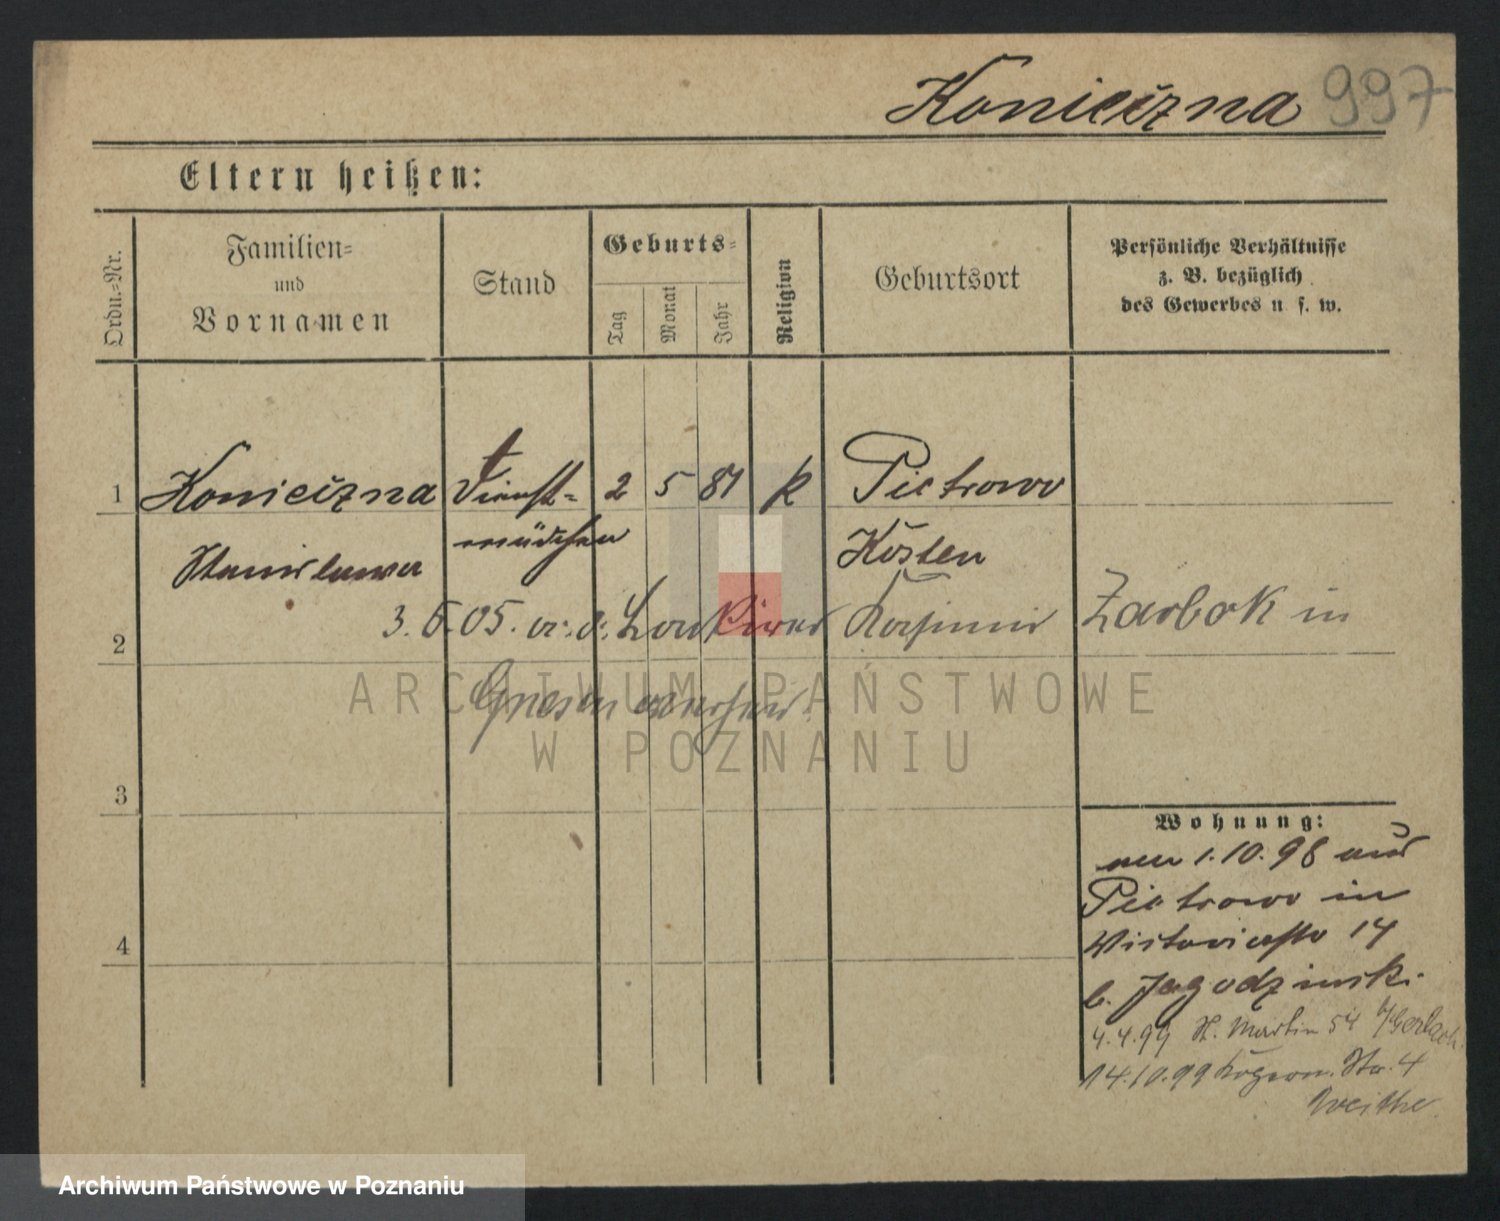 Konieczna 997
Eltern heißen:
Ordn.-Nr.
Familien-
und
Vornamen
Stand
Geburts-
Tag
Monat
Jahr
Religion
Geburtsort
Persönliche Verhältnisse
z. B. bezüglich
des Gewerbes u. s. w.
1 Konieczna Dienst- 2 5 81 k Pietrowo
Stanislawa mädchen Kosten
3. 6. 05. Kasimir Zarbok in
2
Gnesen
ARCHIWUM PAŃSTWOWE
W POZNANIU
3
Wohnung:
1.10.98 aus
Pietrowo in
Victoriastr 14
4
b. Jagodzinski.
4.4.99 St. Martin 54 b/Gerlach.
14.10.99 Str. 4
Archiwum Państwowe w Poznaniu